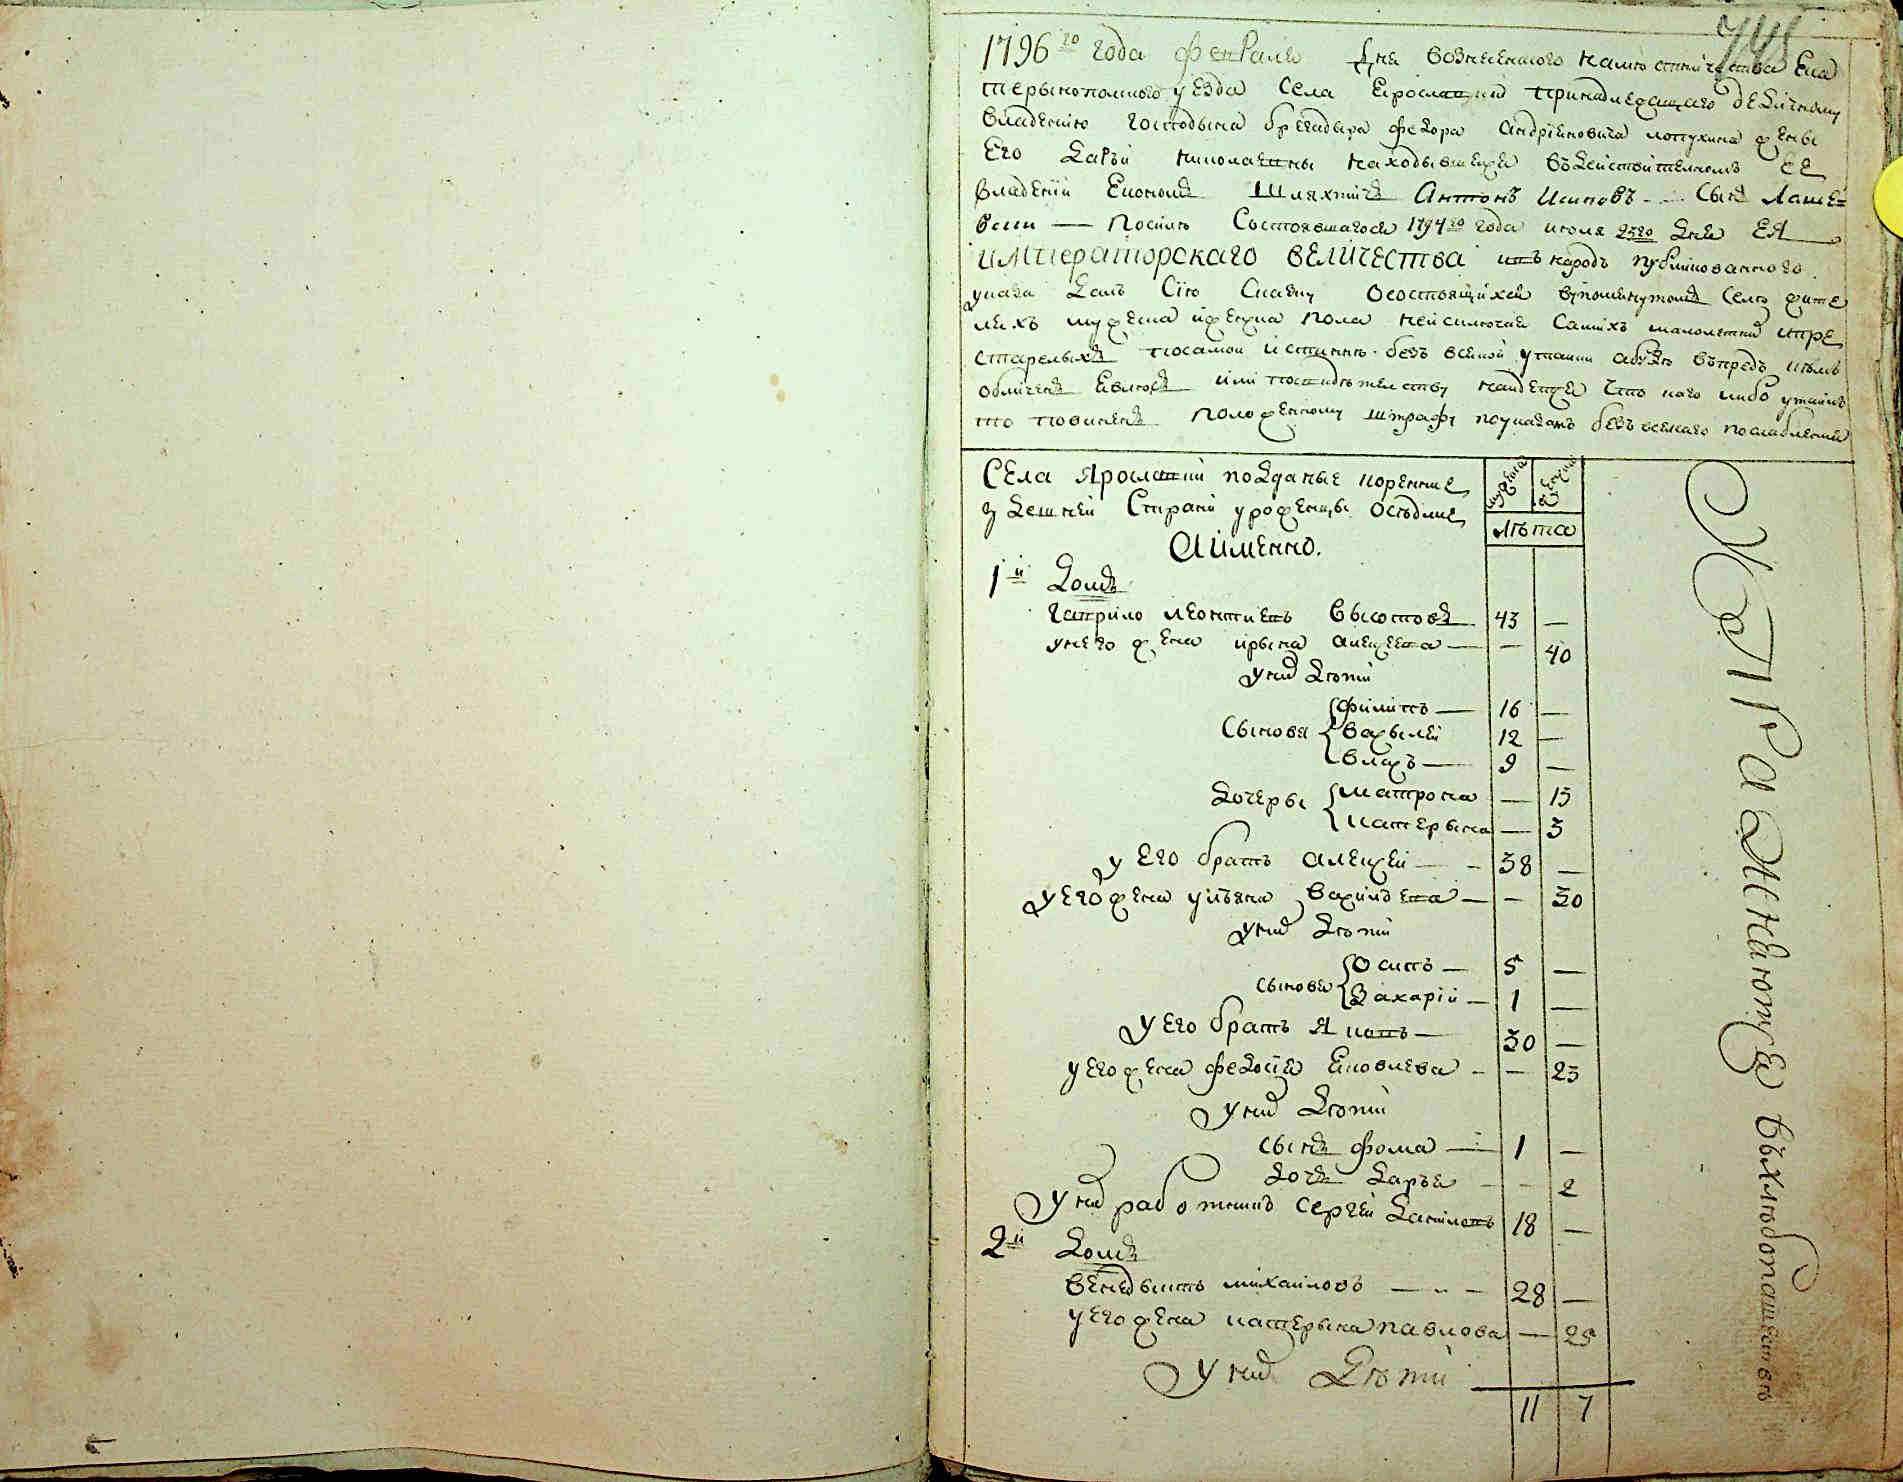 745
1796 го года февраля дня вознесенского наместничества Ека
теринополского уезда Села Ерославки принадлежащаго
владению господина бригадира федора андрияновича лопухина жены
Его дарьи николаевны находывшейся въдействителномъ ее
владении Економъ Шляхтичъ Антонъ Исиповъ сынъ
посилѣ Состоявшагося 1794 го года июля 23 го дня ЕЯ
императорскаго величества внародъ публикованного
указа далъ Сію Сказку осостоящихся вупомянутомъ селѣ жите
ляхъ мужеска иженска пола неисключая самихъ малолетнихъ ипре
старелыхъ посамой истинне безъ всякой утайки абуде въпредъ кѣмъ
обличенъ явлюсь или посвидетелству найдется что кого либо утаилъ
то повиненъ положенному штрафу поуказамъ безъ всякаго послабления
Села Ярославки подданые коренние
здешней Страни уроженцы оседлие
Аименно.
мужеска
женска
лѣта
1 й домъ
гаврило леонтиевъ 43 —
унего жена ирына алексеева — 40
уних дѣти
Сыновя филипъ — 16 —
василей 12 —
власъ — 9 —
дочеры матрона — 15
катерына — 3
у Его братъ алексей — 38 —
уего жена улияна — 30
уних дѣти
сыновя Осипъ — 5 —
Захарій — 1 —
у его братъ Яковъ — 30 —
уего жена федосия Яковлева — 23
уних дѣти
сынъ фома — 1 —
дочь дарья — 2
уних работникъ сергей даниловъ 18 —
2 й домъ
венедыктъ михайловъ — 28 —
уего жена катерына павлова — 25
уних дѣти
11 7
упражняются въхлебопашествѣ